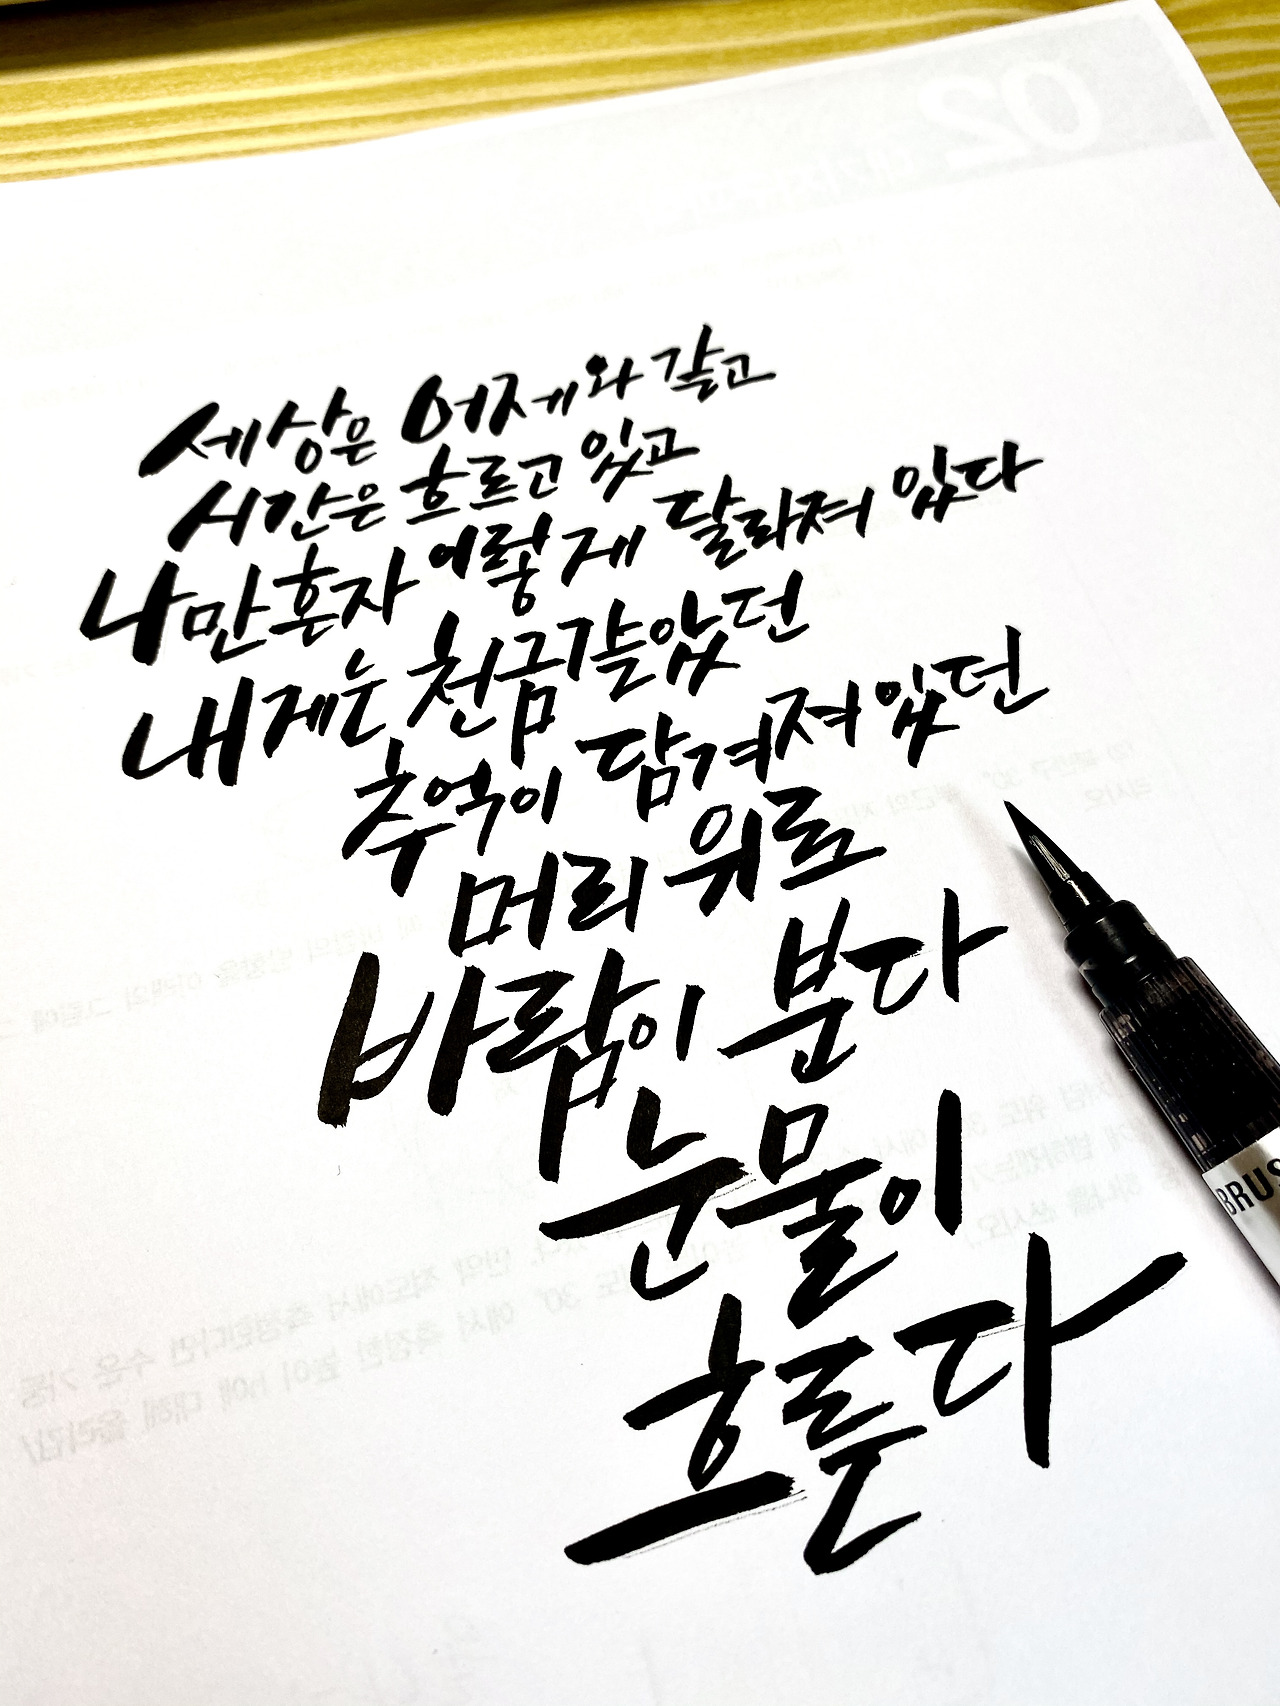 세상은 어제와 같고
시간은 흐르고 있고
나만 혼자 이렇게 달라져 있다
내게는 천금같았던
추억이 담겨져 있던
머리 위로
바람이 분다
눈물이
흐른다
BRUS